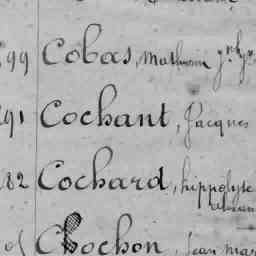 99 Cobas, Mathurin
91 Cochant, Jacques
82 Cochard, hippolyte
Cochon, Jean Mar